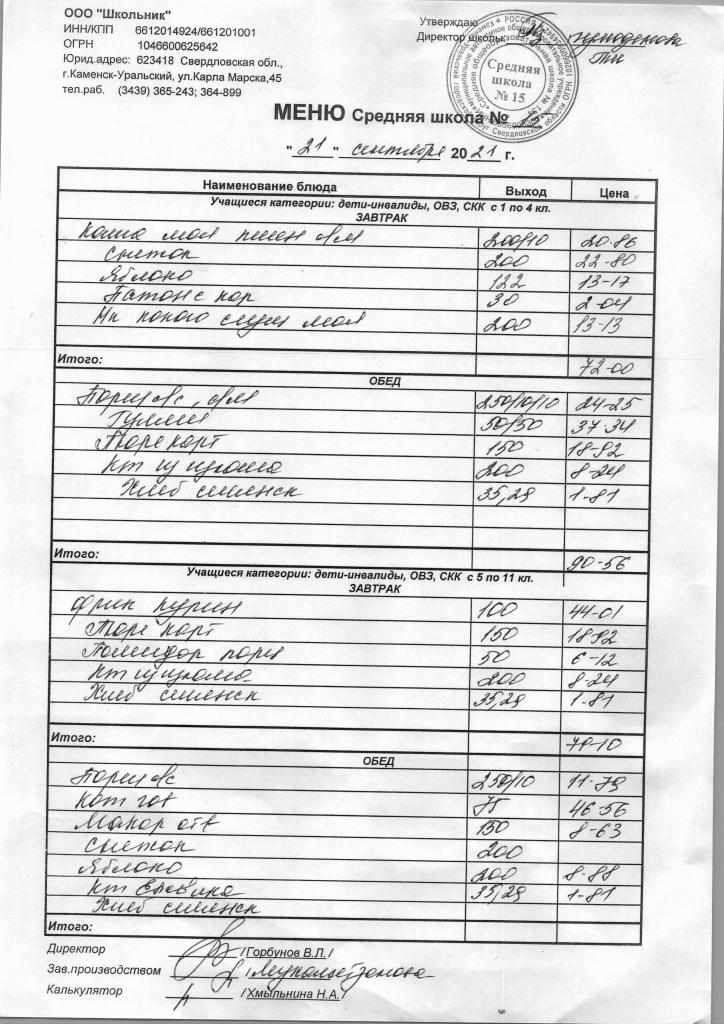 ООО "Школьник"
ИНН/КПП 6612014924/661201001
ОГРН 1046600625642
Юрид.адрес: 623418 Свердловская обл.,
г.Каменск-Уральский, ул.Карла Марска,45
тел.раб. (3439) 365-243; 364-899
Утверждаю
Директор школы:
Средняя
школа
№ 15
МЕНЮ Средняя школа №
"21" сентября 2021 г.
Наименование блюда Выход Цена
Учащиеся категории: дети-инвалиды, ОВЗ, СКК с 1 по 4 кл.
ЗАВТРАК
Каша мол пшен с/м 200/10 20-86
200 22-80
Яблоко 122 13-17
30 2-04
200 13-13
Итого: 72-00
ОБЕД
Борщ 250/10/10 24-25
Гуляш 50/50 37-34
Пюре карт 150 18-92
Кт 200 8-24
Хлеб смленск 35,29 1-81
Итого: 90-56
Учащиеся категории: дети-инвалиды, ОВЗ, СКК с 5 по 11 кл.
ЗАВТРАК
Фрик курин 100 44-01
Пюре карт 150 18-92
Помидор 50 6-12
Кт 200 8-24
Хлеб смленск 35,29 1-81
Итого: 79-10
ОБЕД
Борщ 250/10 11-79
Кот 75 46-56
Макар отв 150 8-63
200
Яблоко 200 8-88
Кт 35,29 1-81
Хлеб смленск
Итого:
Директор /Горбунов В.Л./
Зав.производством
Калькулятор /Хмыльнина Н.А./